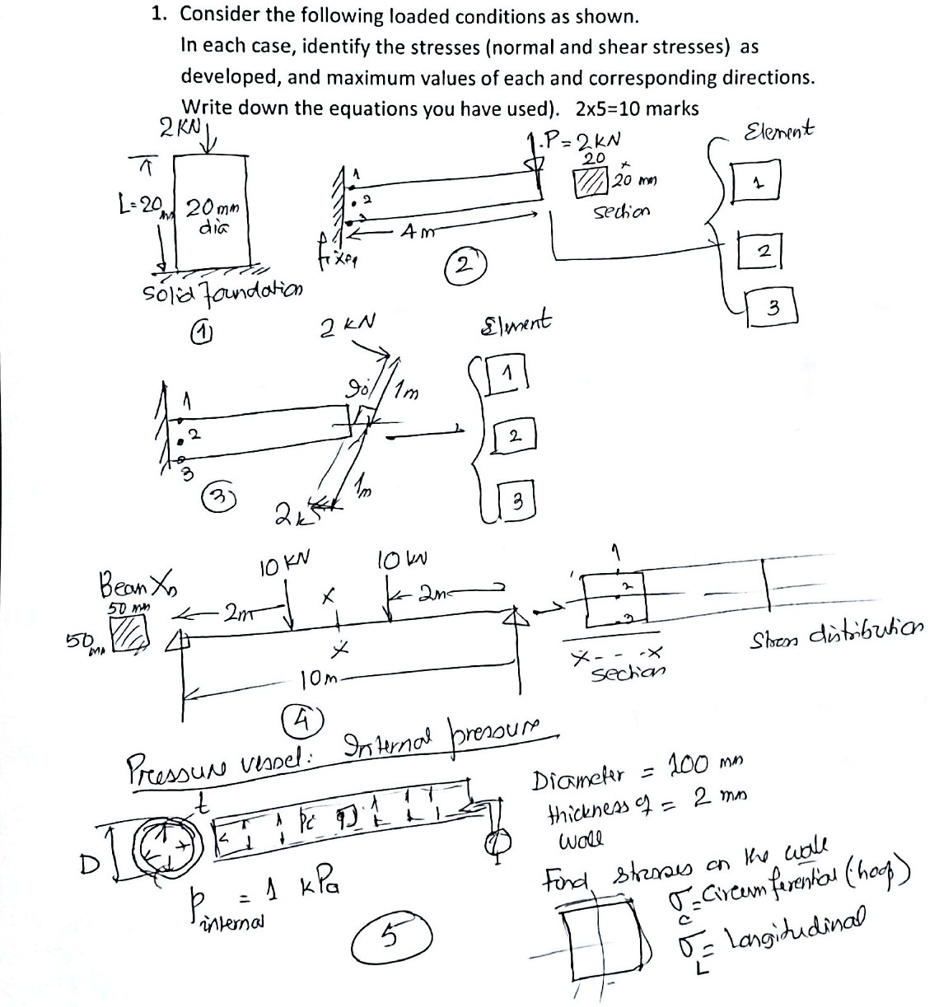 1. Consider the following loaded conditions as shown.
In each case, identify the stresses (normal and shear stresses) as
developed, and maximum values of each and corresponding directions.
Write down the equations you have used). 2x5=10 marks
2 KN
L=20
20mm
dia
Solid foundation
1
1
2
3
fixed
4m
2
P=2KN
20
20 mm
section
Element
1
2
3
2 KN
90
1m
1m
2k
1
2
3
3
Element
1
2
3
Beam Xn
50 mm
50 mm
2m
10 KN
10 KN
2m
x
x
10m
4
1
2
3
x - - - x
section
Stress distribution
Pressure vessel: Internal pressure
D
t
P internal = 1 kPa
5
Diameter = 100 mm
thickness of = 2 mm
wall
Find stresses on the wall
σc = Circumferential (hoop)
σL = Longitudinal